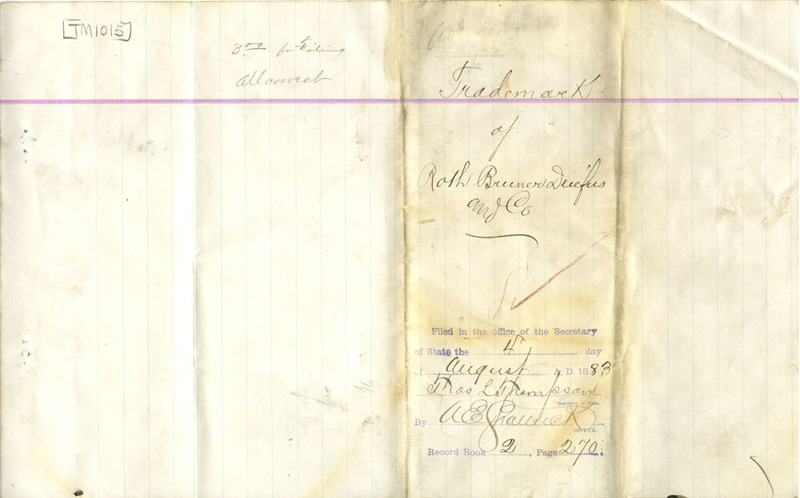 TM1015
3rd for Filing
Trademark
of
Roth Bruner Dreifus
and Co
Filed in the office of the Secretary
of State the 4th day
of August A. D. 1883
Thos L Thompson
Secretary of State.
By A E
DEPUTY.
Record Book 2, Page 270.